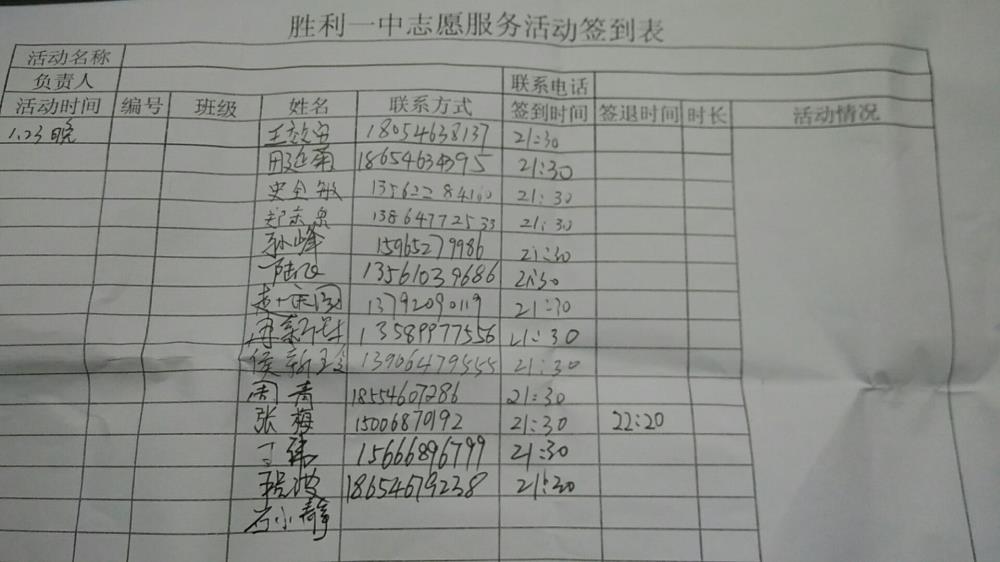 胜利一中志愿服务活动签到表
活动名称
负责人 联系电话
活动时间 编号 班级 姓名 联系方式 签到时间 签退时间 时长 活动情况
1.23晚 18054638137 21:30
18654634395 21:30
史全敏 13562284100 21:30
郑东泉 13864772533 21:30
孙峰 15965279986 21:30
陆飞 13561039686 21:30
13792090119 21:30
13589977556 21:30
侯新 13906479555 21:30
周青 18554607286 21:30
张梅 15006870192 21:30 22:20
丁伟 15666896799 21:30
程波 18654679238 21:30
小静